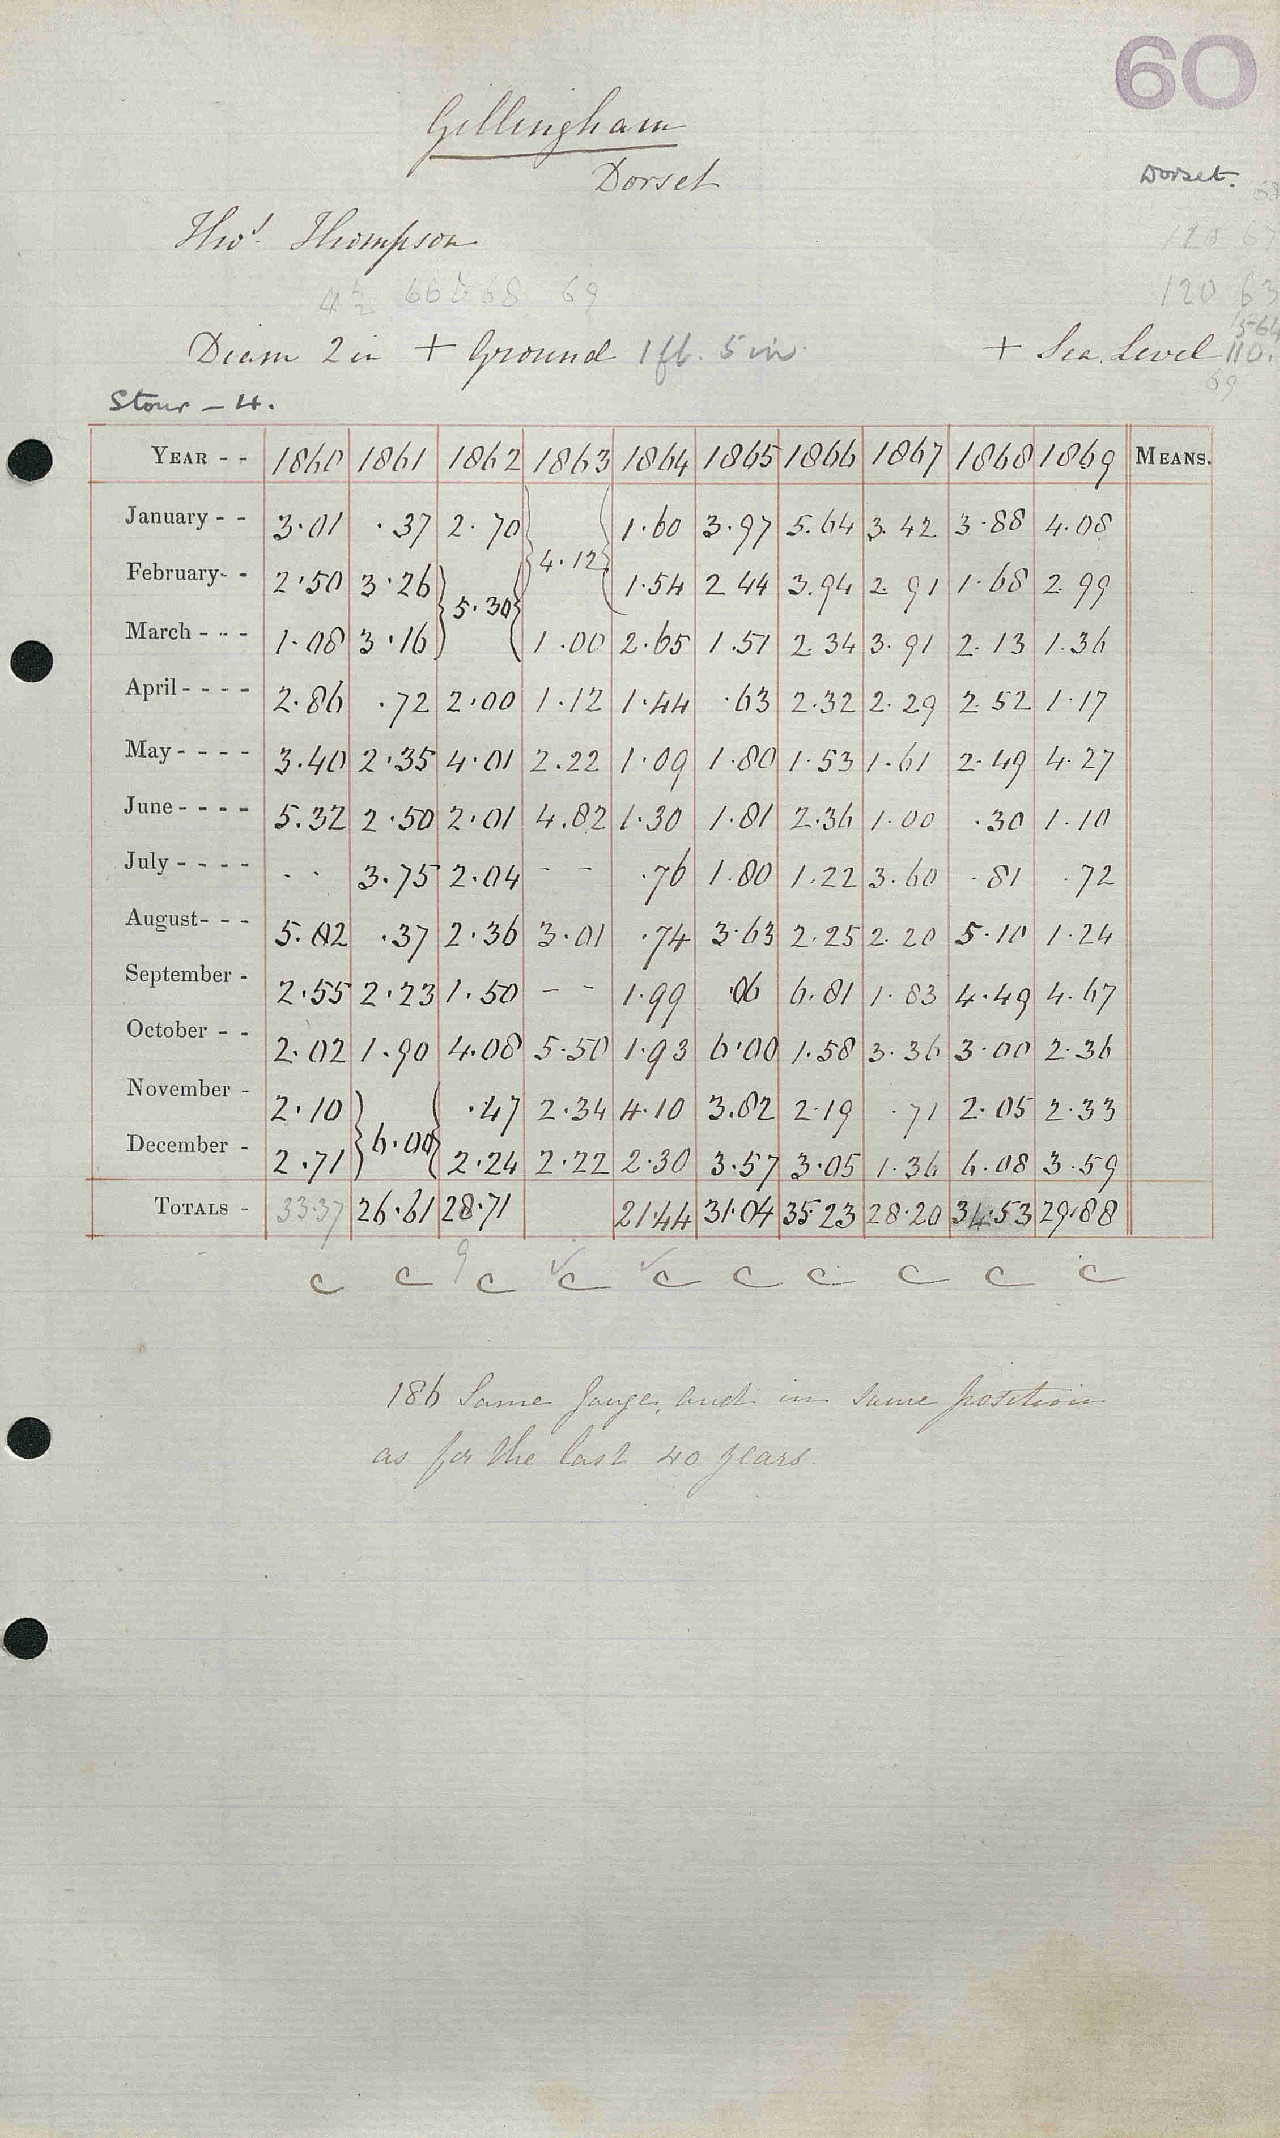 60
Gillingham
Dorset
Dorset.
Thos. Thompson
128 67
4½ 66 68 69
120 63
Diam 2 in + Ground 1 ft. 5 in. + Sea Level 110.
69
Stour - 4.
YEAR - - 1860 1861 1862 1863 1864 1865 1866 1867 1868 1869 MEANS.
January - - 3.01 .37 2.70 1.60 3.97 5.64 3.42 3.88 4.08
4.12
February- - 2.50 3.26 1.54 2.44 3.94 2.91 1.68 2.99
5.30
March - - - 1.08 3.16 1.00 2.65 1.51 2.34 3.91 2.13 1.36
April - - - - 2.86 .72 2.00 1.12 1.44 .63 2.32 2.29 2.52 1.17
May - - - - 3.40 2.35 4.01 2.22 1.09 1.80 1.53 1.61 2.49 4.27
June - - - - 5.32 2.50 2.01 4.82 1.30 1.81 2.36 1.00 .30 1.10
July - - - - . . 3.75 2.04 - - .76 1.80 1.22 3.60 .81 .72
August- - - 5.82 .37 2.36 3.01 .74 3.63 2.25 2.20 5.10 1.24
September - 2.55 2.23 1.50 - - 1.99 .06 6.81 1.83 4.49 4.67
October - - 2.02 1.90 4.08 5.50 1.93 6.00 1.58 3.36 3.00 2.36
November - 2.10 .47 2.34 4.10 3.82 2.19 .71 2.05 2.33
6.00
December - 2.71 2.24 2.22 2.30 3.57 3.05 1.36 6.08 3.59
TOTALS - 33.37 26.61 28.71 21.44 31.04 35.23 28.20 34.53 29.88
9
c c c c c c c c c c
186 Same gauge, and in same position
as for the last 40 years